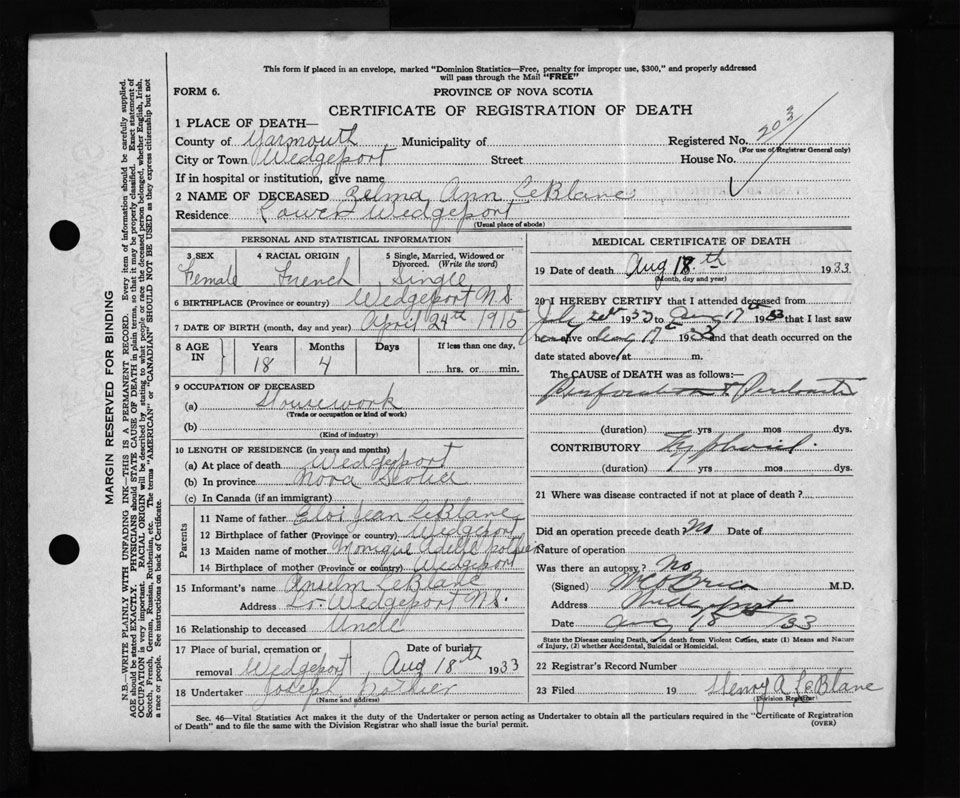 This form if placed in an envelope, marked "Dominion Statistics—Free, penalty for improper use, $300," and properly addressed
will pass through the Mail "FREE"
FORM 6.
PROVINCE OF NOVA SCOTIA
CERTIFICATE OF REGISTRATION OF DEATH
1 PLACE OF DEATH—
County of Yarmouth Municipality of Registered No. 203
(For use of Registrar General only)
City or Town Wedgeport Street House No.
If in hospital or institution, give name
2 NAME OF DECEASED Ann LeBlanc
Residence Lower Wedgeport
(Usual place of abode)
PERSONAL AND STATISTICAL INFORMATION
3 SEX 4 RACIAL ORIGIN 5 Single, Married, Widowed or
Divorced. (Write the word)
Female French Single
6 BIRTHPLACE (Province or country) Wedgeport N.S.
7 DATE OF BIRTH (month, day and year) April 24th 1915
8 AGE IN Years Months Days If less than one day,
18 4 hrs. or min.
9 OCCUPATION OF DECEASED
(a) Housework
(Trade or occupation or kind of work)
(b)
(Kind of industry)
10 LENGTH OF RESIDENCE (in years and months)
(a) At place of death Wedgeport
(b) In province Nova Scotia
(c) In Canada (if an immigrant)
Parents
11 Name of father Eloi Jean LeBlanc
12 Birthplace of father (Province or country) Wedgeport
13 Maiden name of mother Monique Adele
14 Birthplace of mother (Province or country) Wedgeport
15 Informant's name Anselm LeBlanc
Address Lr. Wedgeport N.S.
16 Relationship to deceased Uncle
17 Place of burial, cremation or Date of burial
removal Wedgeport Aug 18th 1933
18 Undertaker Joseph Pothier
(Name and address)
MEDICAL CERTIFICATE OF DEATH
19 Date of death Aug 18th 1933
(month, day and year)
20 I HEREBY CERTIFY that I attended deceased from
July 1933 to Aug 17th 1933 that I last saw
alive on Aug 17th 1933 and that death occurred on the
date stated above, at m.
The CAUSE of DEATH was as follows:—
Perforation & Peritonitis
(duration) yrs mos dys.
CONTRIBUTORY Typhoid.
(duration) yrs mos dys.
21 Where was disease contracted if not at place of death?
Did an operation precede death? No Date of
Nature of operation
Was there an autopsy? No
(Signed) M.D.
Address Wedgeport
Date Aug 18 /33
State the Disease causing Death, or in death from Violent Causes, state (1) Means and Nature
of Injury, (2) whether Accidental, Suicidal or Homicidal.
22 Registrar's Record Number
23 Filed 19 Henry A. LeBlanc
(Division Registrar)
Sec. 46—Vital Statistics Act makes it the duty of the Undertaker or person acting as Undertaker to obtain all the particulars required in the "Certificate of Registration
of Death" and to file the same with the Division Registrar who shall issue the burial permit.
(OVER)
MARGIN RESERVED FOR BINDING
N.B.—WRITE PLAINLY WITH UNFADING INK—THIS IS A PERMANENT RECORD. Every item of information should be carefully supplied.
AGE should be stated EXACTLY. PHYSICIANS should STATE CAUSE OF DEATH in plain terms, so that it may be properly classified. Exact statement of
OCCUPATION is very important. RACIAL ORIGIN will be described by stating to what people or race the deceased person belonged, whether English, Irish,
Scotch, French, German, Russian, Ruthenian, etc. The terms "AMERICAN" or "CANADIAN" SHOULD NOT BE USED as they express citizenship but not
a race or people. See instructions on back of Certificate.